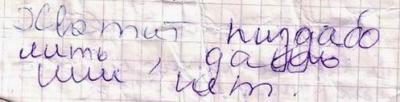 Хватит пиздабо
лить, да
или нет.